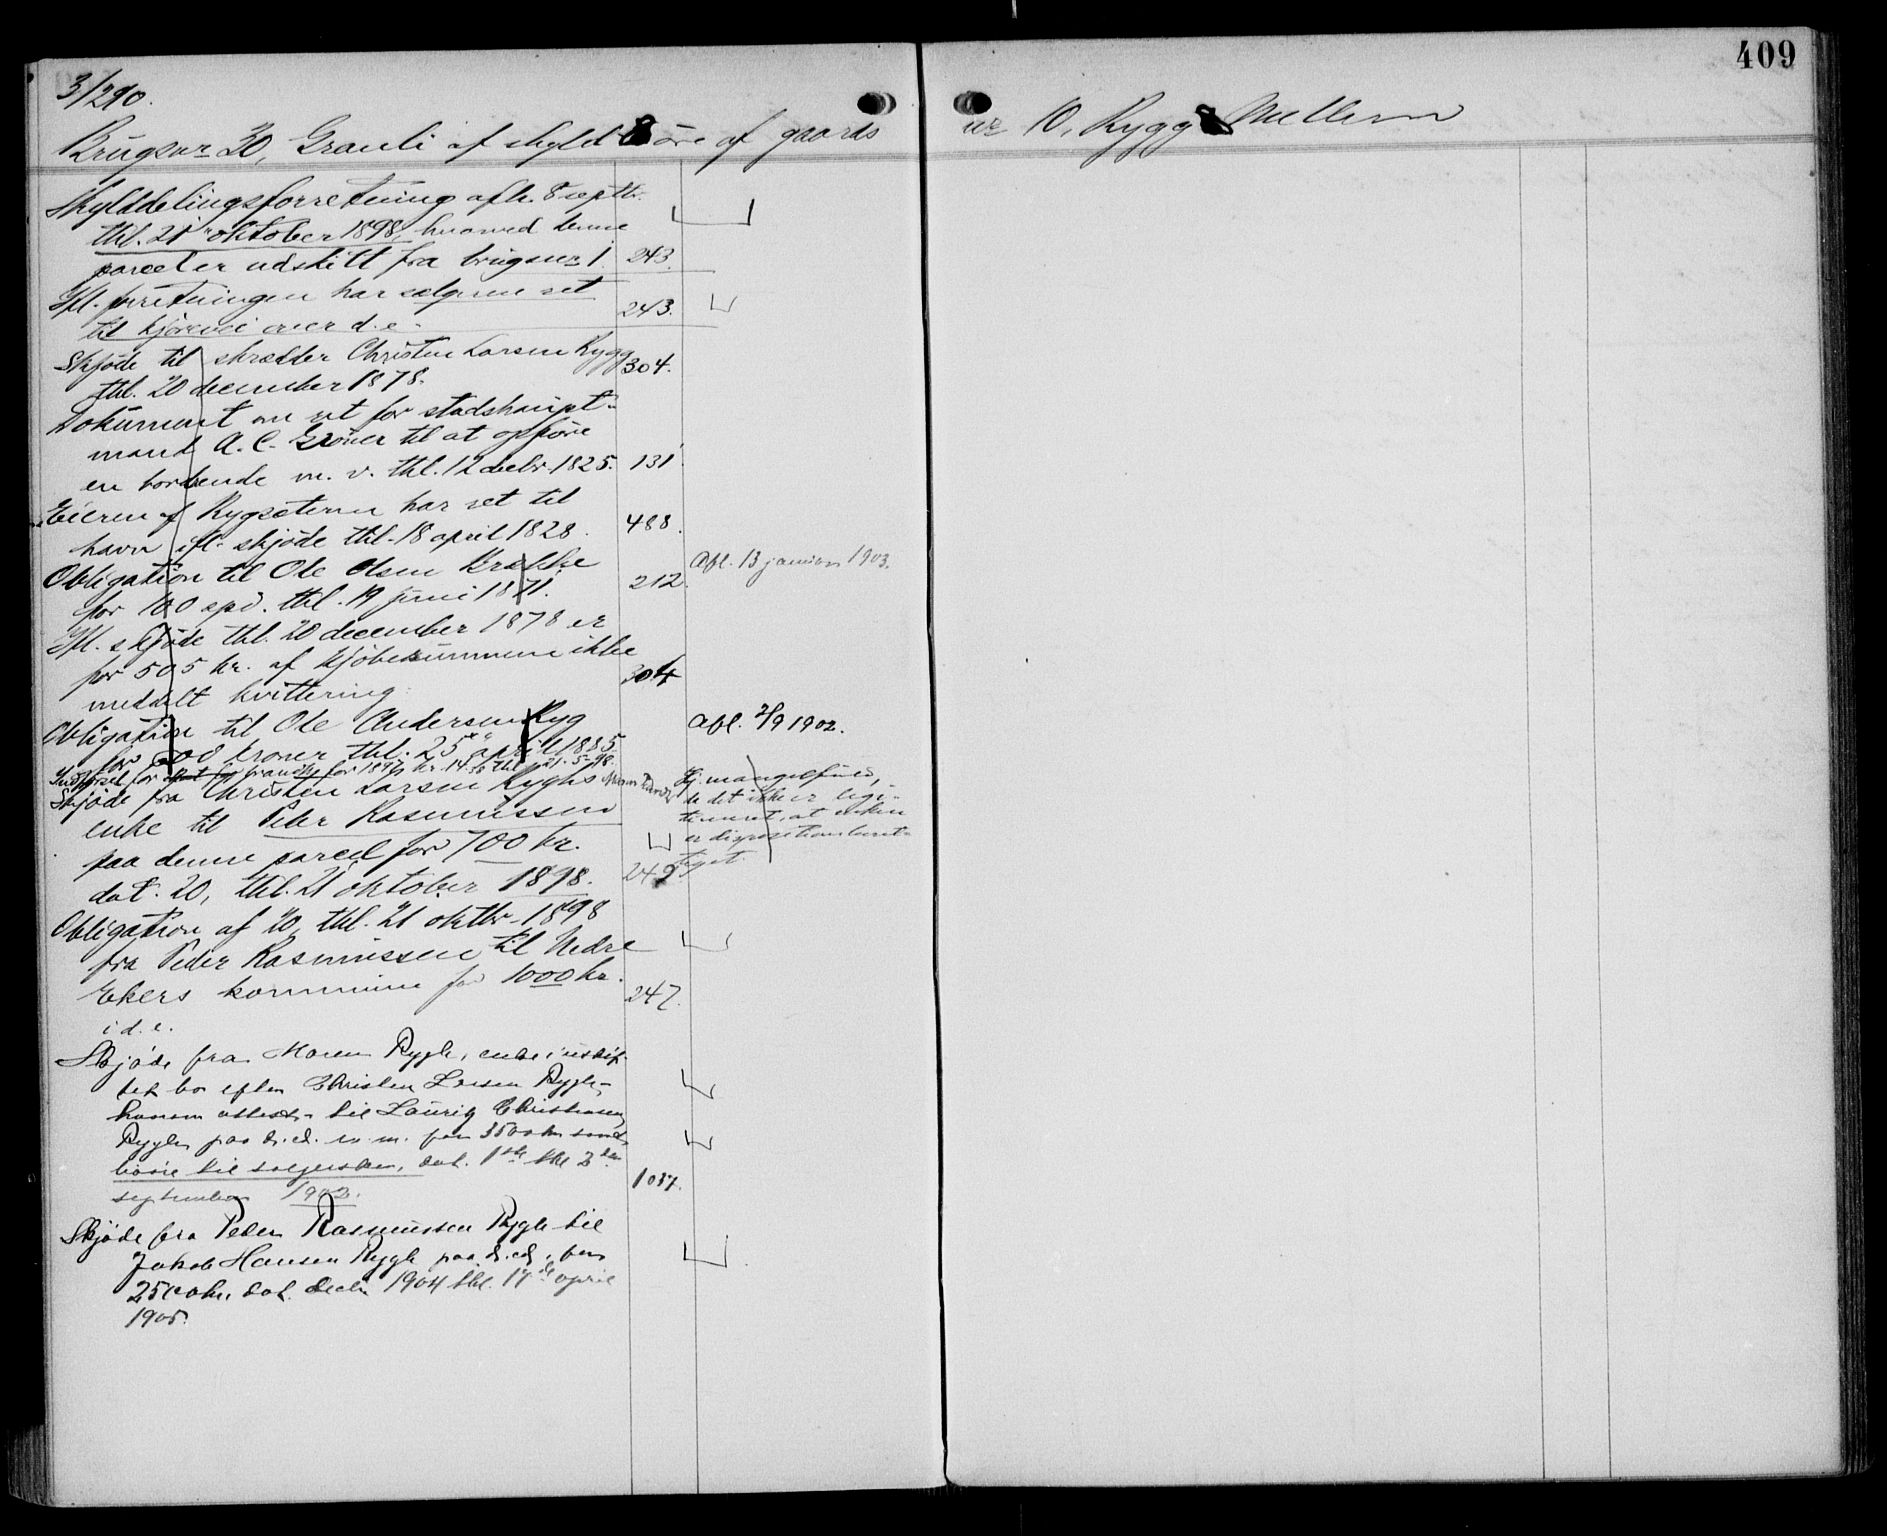 409
3/290.
Brugsnr 30, Granli af skyld 8 øre af gaards nr 10, Rygg Mellem
Skylddelingsforretning afh. 8 septbr.
thl. 21 oktober 1898, hvorved denne
parcel er udskilt fra brugsnr 1. 243.
Ifl. forretningen har sælgerne ret
til kjørevei over d. e. 243.
Skjøde til skrædder Christen Larsen Rygg 304.
thl. 20 december 1878.
Dokument om ret for stadshaupt-
mand A. C. til at opføre
en m. v. thl. 12 decbr. 1825. 131
Eieren af Rygsæteren har ret til
havn ifl. skjøde thl. 18 april 1828. 488.
Obligation til Ole Olsen Krække
for 100 spd. thl. 19 juni 1871. 212. Afl. 13 januar 1903.
Ifl. skjøde thl. 20 december 1878 er
for 505 kr. af kjøbesummen ikke
meddelt kvittering. 304
Obligation til Ole Andersen Ryg
for kroner thl. 25 april 1885. Afl. 2/9 1902.
for for 1897 kr. 14.36 thl. 21-5-98.
Skjøde fra Christen Larsen Ryghs
enke til Peter Rasmussen
paa denne parcel for 700 kr.
dat. 20, thl. 21 oktober 1898. 249
Hj. mangelfuld,
da det ikke er legi-
timeret, at enken
er dispositionsberet-
tiget.
Obligation af 20, thl. 21 oktbr. 1898
fra Peder Rasmussen til Nedre
Ekers kommune for 1000 kr. 247.
i d. e.
Skjøde fra Maren Rygh, enke i uskif-
tet bo efter Christen Larsen Rygh-
hvorom attest- til Lauritz Christensen
Rygh paa d. ed. m. m. for 3500 kr samt
til sælgersken, dat. 1ste thl 2den
september 1902. 1057.
Skjøde fra Peder Rasmussen Rygh til
Jakob Hansen Rygh paa d. ed. for
2500 kr. dat. decbr 1904 thl. 17de april
1905.